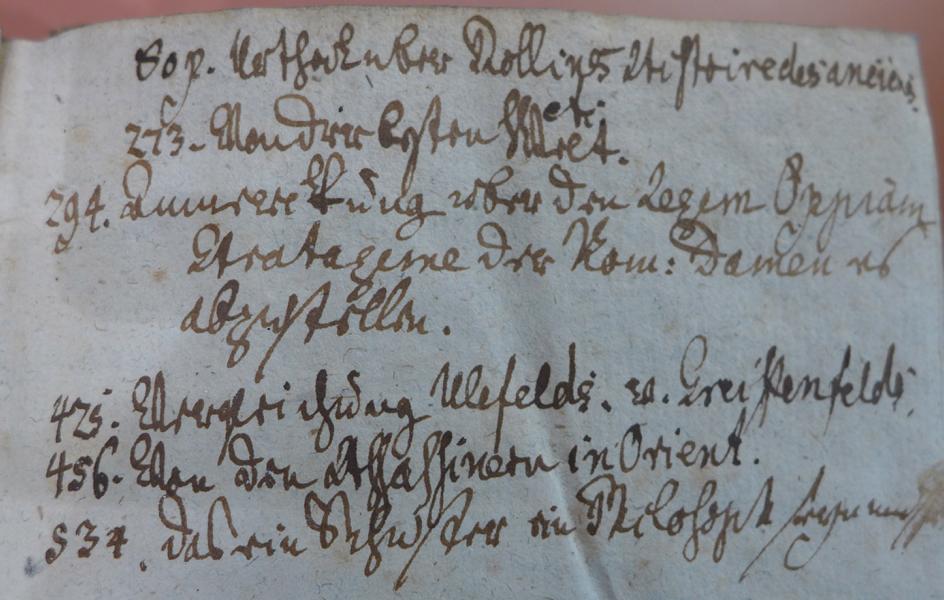 80 p. Urtheil uber Rollins Histoire des anciens.
273. Von der besten Welt. etc.
294. Anmerckung uber den Legem Oppiam
Stratageme der Rom: Damen es
abzustellen.
425. Vergleichung Ulefelds. u. Greiffenfelds.
456. Von den Assassinern in Orient.
534. das ein Schuster ein Philosoph seyn